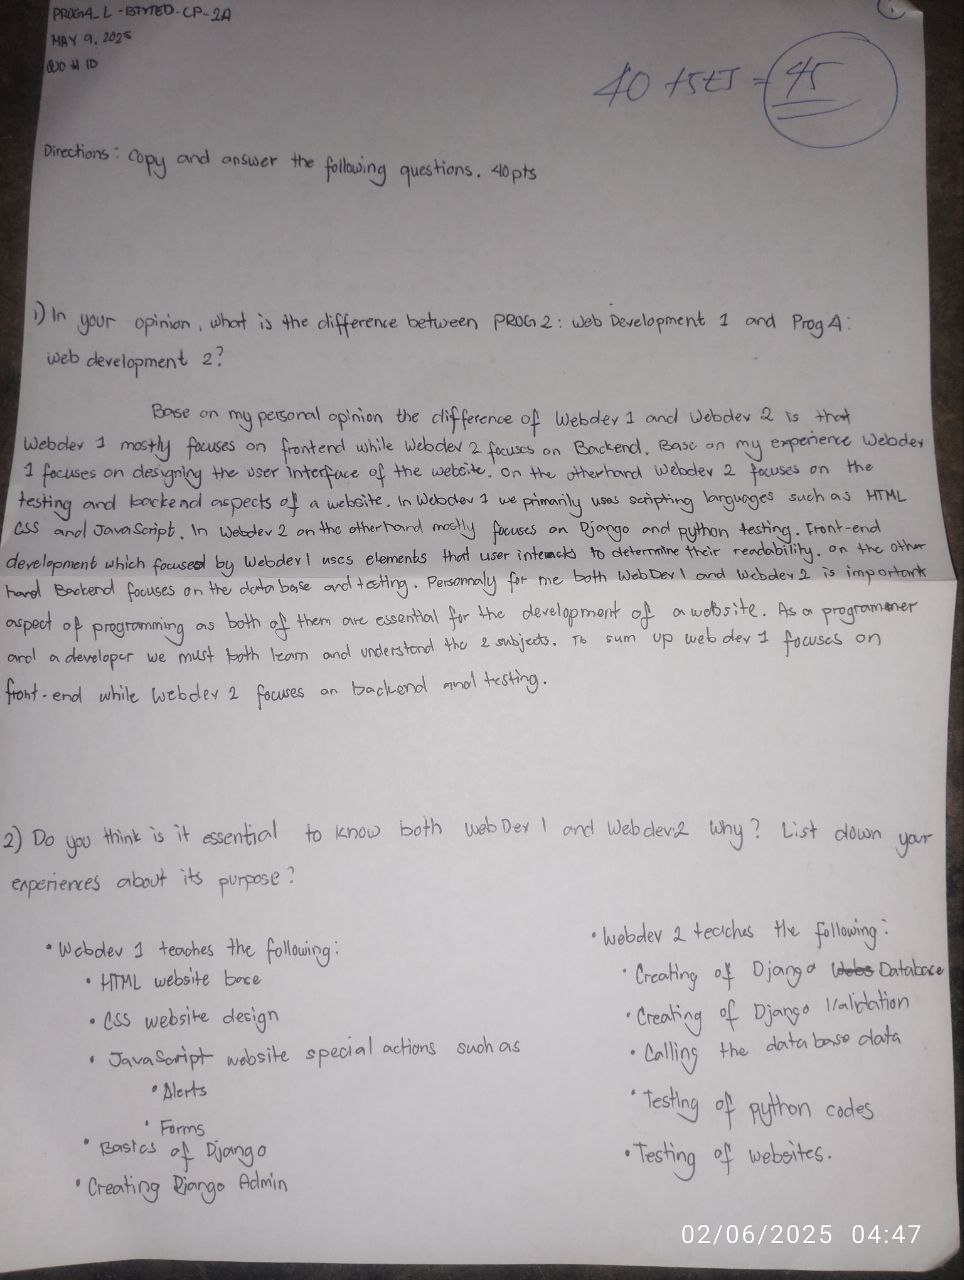 PROG4_L - BTVTED - CP - 2A
MAY 9, 2025
40 +5 = 45
Directions: Copy and answer the following questions. 40pts
1) In your opinion, what is the difference between PROG 2: Web Development 1 and Prog 4:
web development 2?
Base on my personal opinion the difference of Webdev 1 and Webdev 2 is that
Webdev 1 mostly focuses on frontend while Webdev 2 focuses on Backend. Base on my experience Webdev
1 focuses on designing the user interface of the website. On the otherhand Webdev 2 focuses on the
testing and backend aspects of a website. In Webdev 1 we primarily uses scripting languages such as HTML
CSS and JavaScript. In Webdev 2 on the otherhand mostly focuses on Django and python testing. Front-end
development which focused by Webdev 1 uses elements that user interacts to determine their readability. on the other
hand Backend focuses on the data base and testing. Personnaly for me both WebDev 1 and Webdev 2 is important
aspect of programming as both of them are essential for the development of a website. As a programmer
and a developer we must both learn and understand the 2 subjects. To sum up web dev 1 focuses on
front-end while Webdev 2 focuses on backend and testing.
2) Do you think is it essential to know both WebDev 1 and Webdev2 Why? List down your
experiences about its purpose?
• Webdev 1 teaches the following:
• HTML website base
• CSS website design
• JavaScript website special actions such as
• Alerts
• Forms
• Basics of Django
• Creating Django Admin
• Webdev 2 teaches the following:
• Creating of Django Database
• Creating of Django Validation
• Calling the data base data
• Testing of python codes
• Testing of websites.
02/06/2025 04:47